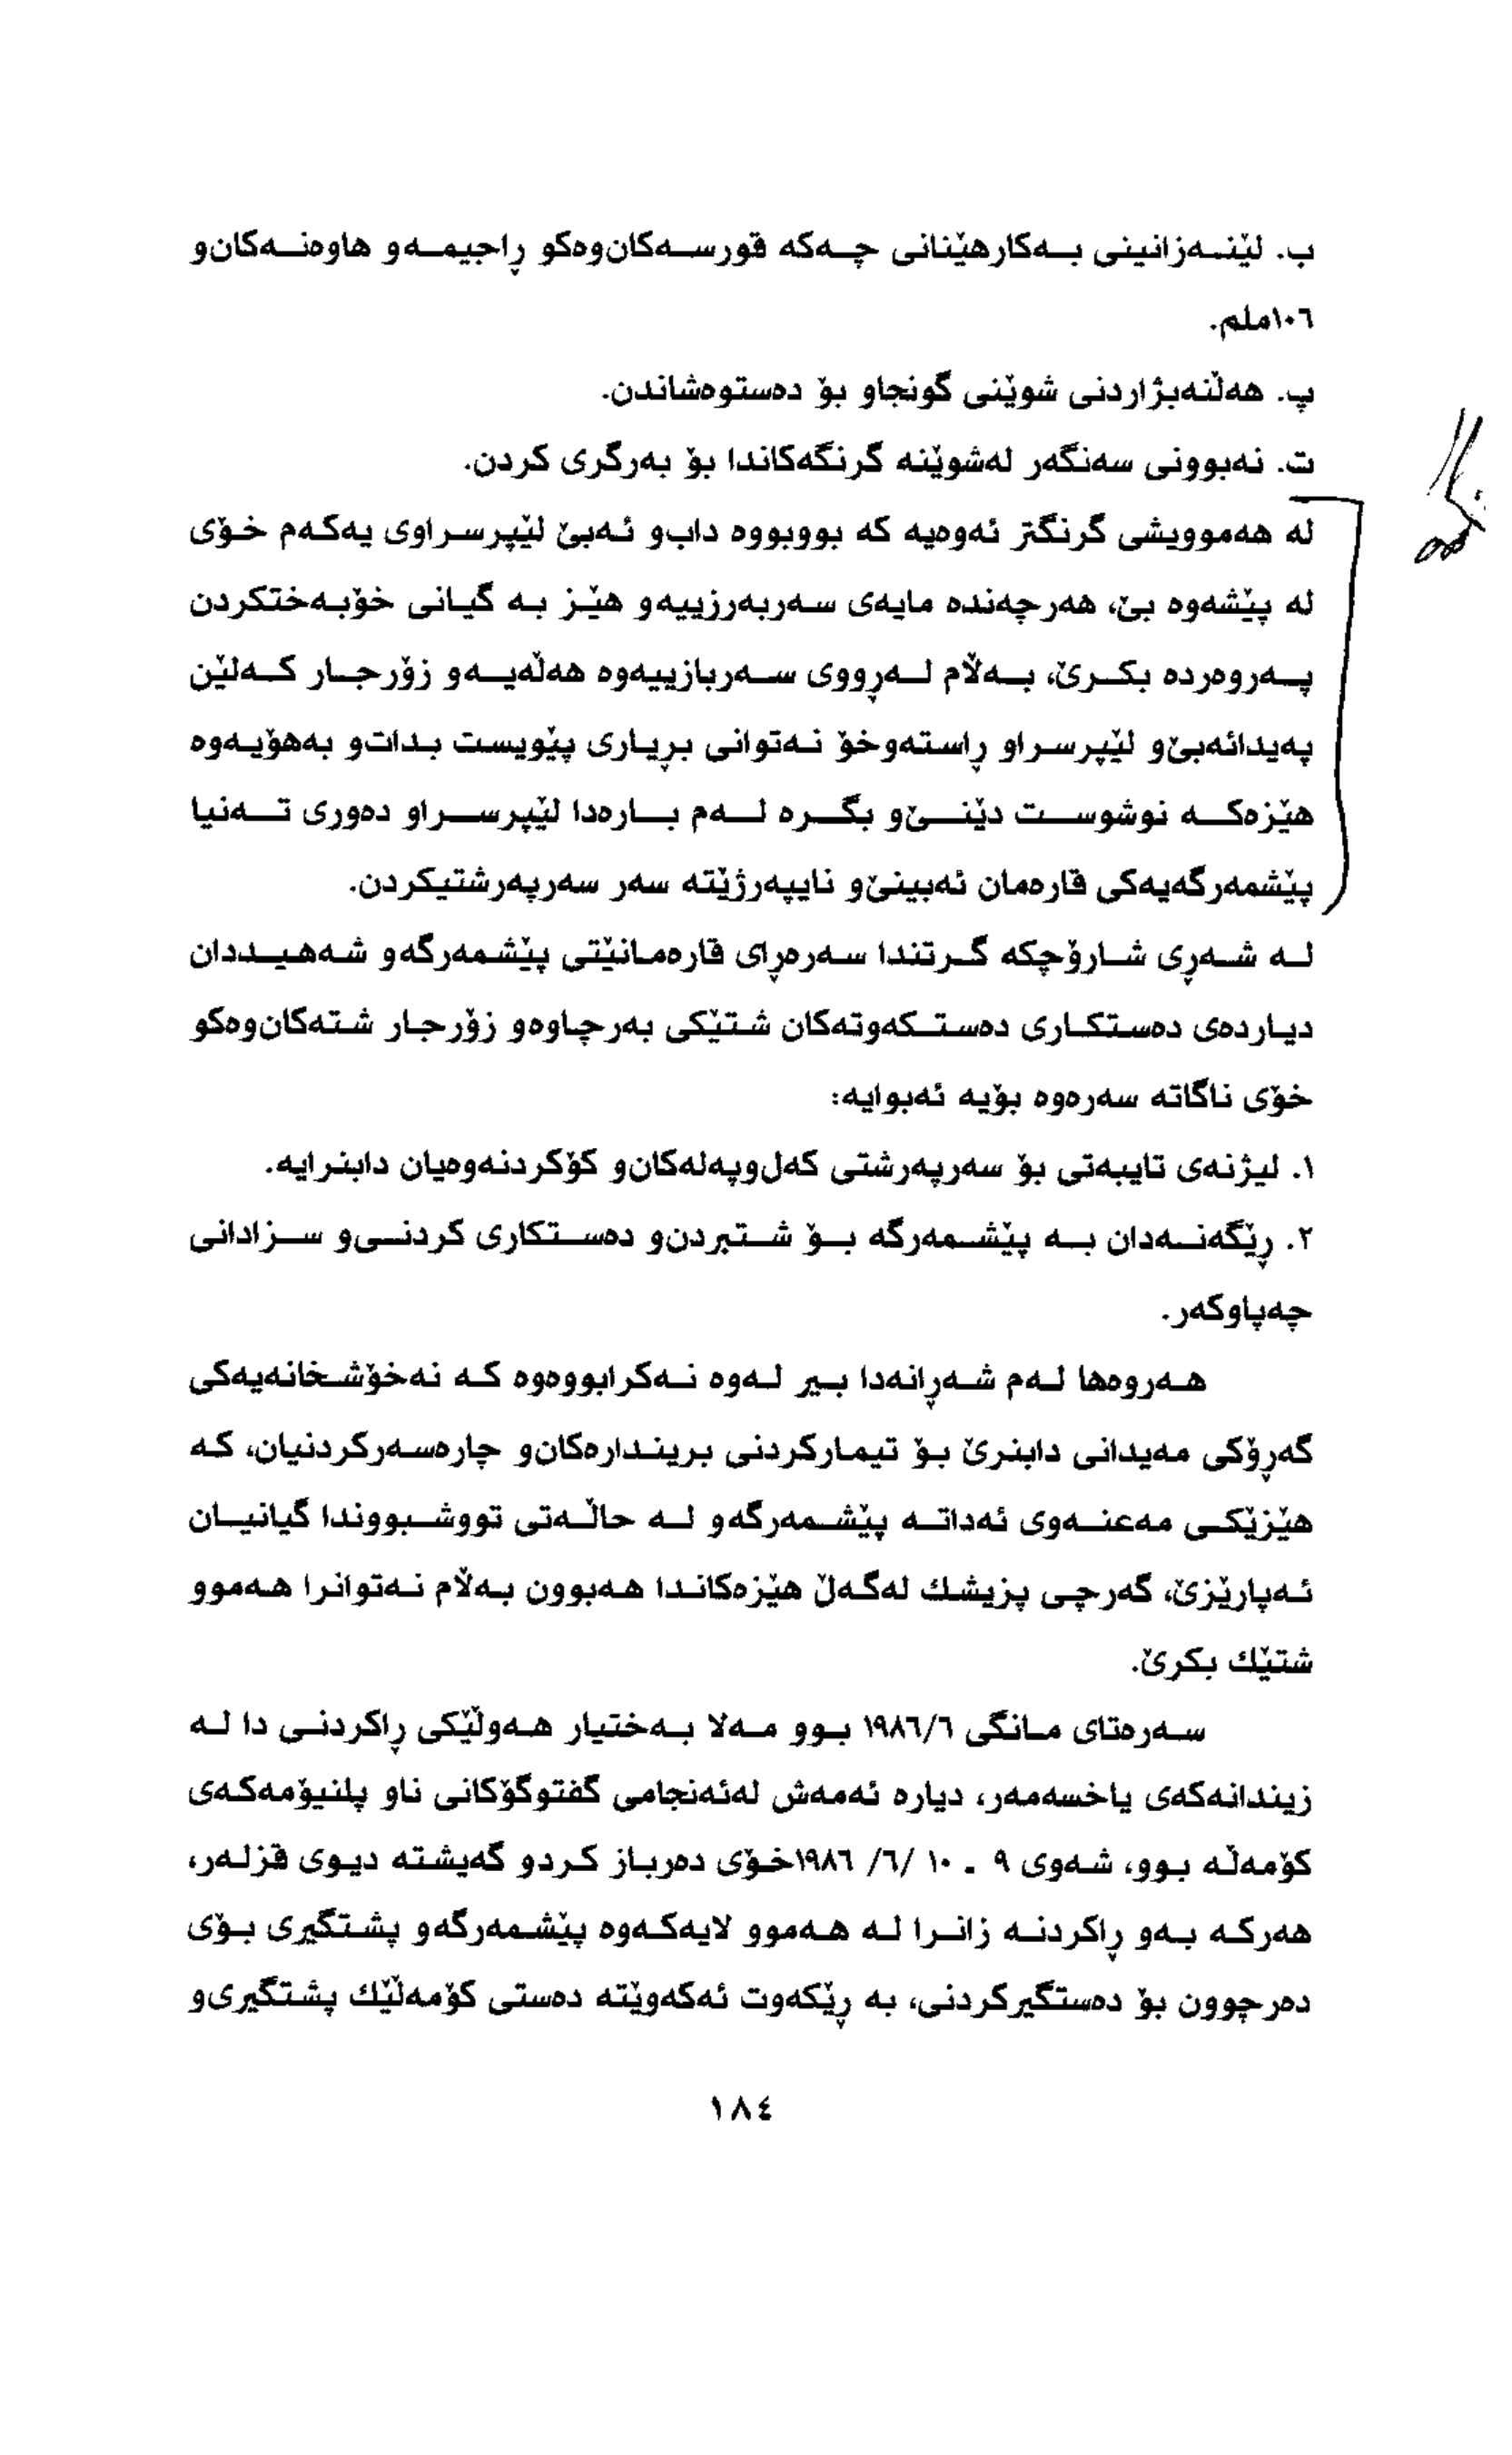 ب. لێنەزانینی بەکارهێنانی چەکە قورسەکان‌وەکو ڕاجیمەو هاوەنەکان‌و
١٠٦ملم.
پ. هەڵنەبژاردنی شوێنی گونجاو بۆ دەستوەشاندن.
ت. نەبوونی سەنگەر لەشوێنە گرنگەکاندا بۆ بەرگری کردن.
لە هەموویشی گرنگتر ئەوەیە کە بووبووە داب‌و ئەبێ لێپرسراوی یەکەم خۆی
لە پێشەوە بێ، هەرچەندە مایەی سەربەرزییەو هێز بە گیانی خۆبەختکردن
پەروەردە بکرێ، بەڵام لەڕووی سەربازییەوە هەڵەیەو زۆرجار کەلێن
پەیدائەبێ‌و لێپرسراو ڕاستەوخۆ نەتوانی بڕیاری پێویست بدات‌و بەهۆیەوە
هێزەکە نوشوست دێنێ‌و بگرە لەم بارەدا لێپرسراو دەوری تەنیا
پێشمەرگەیەکی قارەمان ئەبینێ‌و ناپپەرژێتە سەر سەرپەرشتیکردن.
لە شەڕی شارۆچکە گرتندا سەرەڕای قارەمانێتی پێشمەرگەو شەهیددان
دیاردەی دەستکاری دەستکەوتەکان شتێکی بەرچاوەو زۆرجار شتەکان‌وەکو
خۆی ناگاتە سەرەوە بۆیە ئەبوایە:
١. لیژنەی تایبەتی بۆ سەرپەرشتی کەل‌وپەلەکان‌و کۆکردنەوەیان دابنرایە.
٢. ڕێگەنەدان بە پێشمەرگە بۆ شتبردن‌و دەستکاری کردنی‌و سزادانی
چەپاوکەر.
هەروەها لەم شەڕانەدا بیر لەوە نەکرابووەوە کە نەخۆشخانەیەکی
گەڕۆکی مەیدانی دابنرێ بۆ تیمارکردنی بریندارەکان‌و چارەسەرکردنیان، کە
هێزێکی مەعنەوی ئەداتە پێشمەرگەو لە حاڵەتی تووشبووندا گیانیان
ئەپارێزێ، گەرچی پزیشك لەگەڵ هێزەکاندا هەبوون بەڵام نەتوانرا هەموو
شتێك بکرێ.
سەرەتای مانگی ١٩٨٦/٦ بوو مەلا بەختیار هەوڵێکی ڕاکردنی دا لە
زیندانەکەی یاخسەمەر، دیارە ئەمەش لەئەنجامی گفتوگۆکانی ناو پلنیۆمەکەی
کۆمەڵە بوو، شەوی ٩ ـ ١٠ /٦/ ١٩٨٦خۆی دەرباز کردو گەیشتە دیوی قزلەر،
هەرکە بەو ڕاکردنە زانرا لە هەموو لایەکەوە پێشمەرگەو پشتگیری بۆی
دەرچوون بۆ دەستگیرکردنی، بە ڕێکەوت ئەکەوێتە دەستی کۆمەڵێك پشتگیری‌و
١٨٤